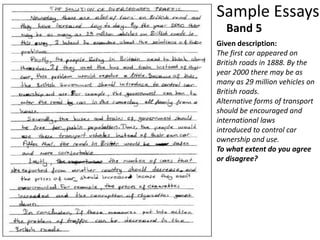 THE SOLUTION OF OVERCROWDED TRAFFIC
Nowaday, there are alot of cars on British road and
they have increase day to day. By the year 2000 there
may be as many as 29 million vehicles on British roads in
this essay, I intend to examine about the solutions of these
problems.
Firstly, the people living in Britain need to think about
themselves. If they used the bus and train instead of their own
car, this problem would resolve a little. Because of this,
the British Government should introduce to control car
ownership and use. For example, the government can ban to
enter the road by car in the someday,
Secondly, the buses and trains of government should
be free for public population. Thus, the people would
use these transport vehicles instead of their own car.
After that the roads in Britain would be safes
and more comfortable.
Lastly, The number of cars that
are exported from another country should decrease and
the prices of car should increased because they don't
manufactured. For example, the prices of cigarettes
increased and the consumption of cigarettes went
down.
In conclusion, If these measures put into action
the problem of traffic can be decreased in the
British Roads.
Sample Essays
Band 5
Given description:
The first car appeared on
British roads in 1888. By the
year 2000 there may be as
many as 29 million vehicles on
British roads.
Alternative forms of transport
should be encouraged and
international laws
introduced to control car
ownership and use.
To what extent do you agree
or disagree?